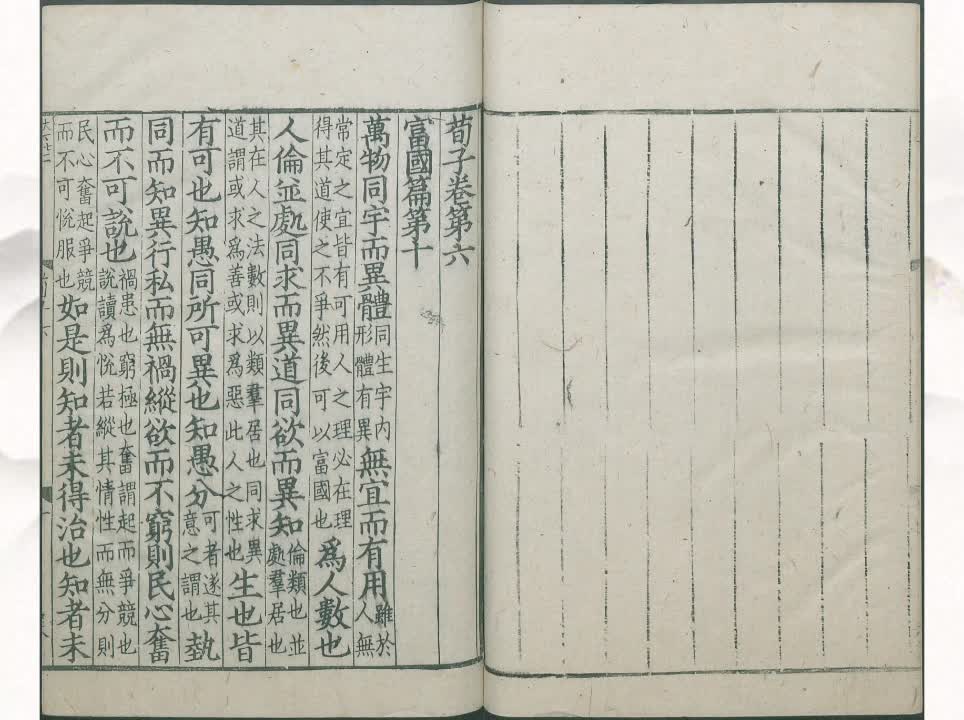 荀子卷第六
富國篇第十
萬物同宇而異體同生宇內形體有異無宜而有用雖於人無
常定之宜皆有可用人之理必在理得其道使之不爭然後可以富國也爲人數也
人倫並處同求而異道同欲而異知倫類也並處羣居也
其在人之法數則以類羣居也同求異道謂或求爲善或求爲惡此人之性也生也皆
有可也知愚同所可異也知愚分可者遂其意之謂也埶
同而知異行私而無禍縱欲而不窮則民心奮
而不可說也禍患也窮極也奮謂起而爭競也說讀爲悅若縱其情性而無分則
民心奮起爭競而不可悅服也如是則知者未得治也知者未